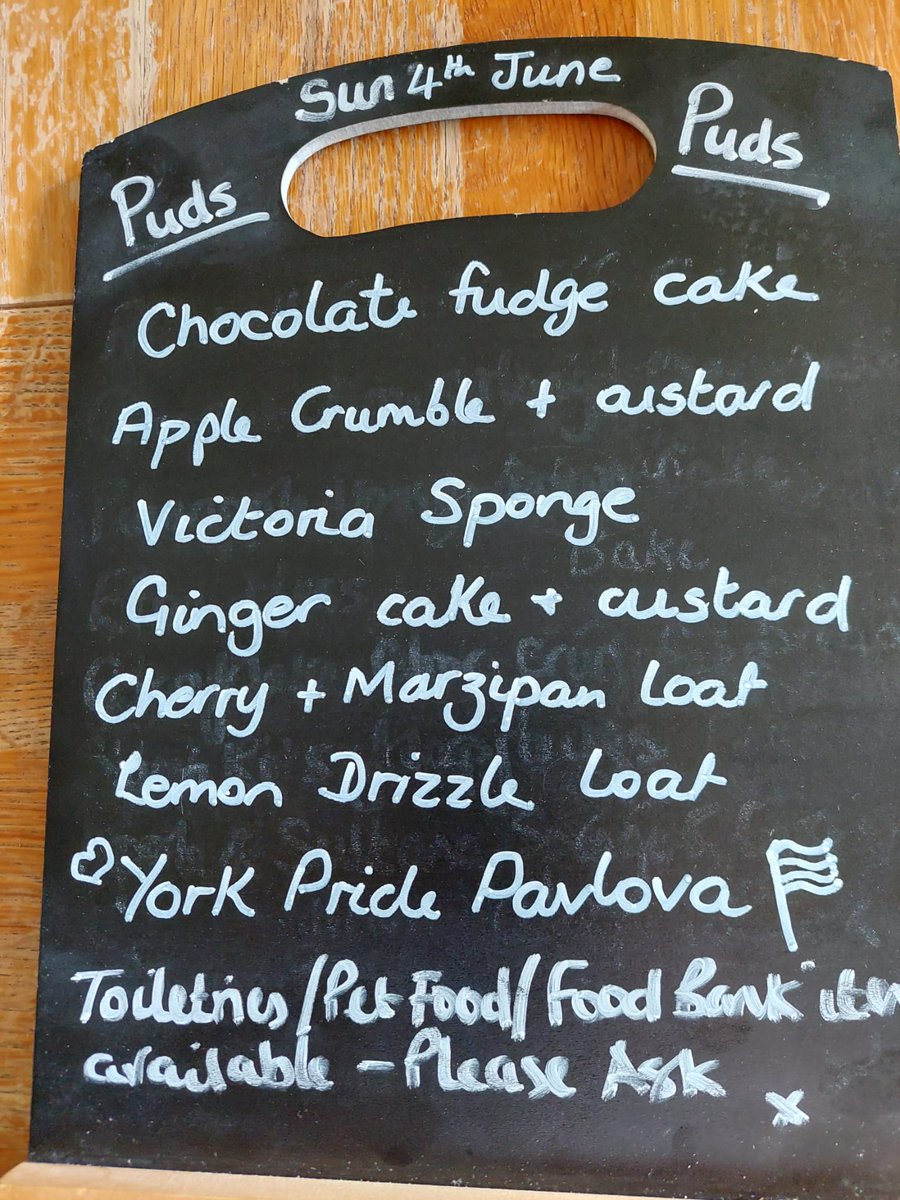 Sun 4th June
Puds
Puds
Chocolate fudge cake
Apple Crumble + custard
Victoria Sponge
Bake
Ginger cake + custard
Cherry + Marzipan loaf
Lemon Drizzle loaf
York Pride Pavlova
Toiletries/Pet Food/Food Bank
available - Please Ask
x